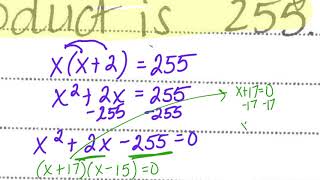 oduct is 255.
x(x+2)=255
x²+2x=255
-255 -255
x+17=0
-17 -17
x
x²+2x-255=0
(x+17)(x-15)=0